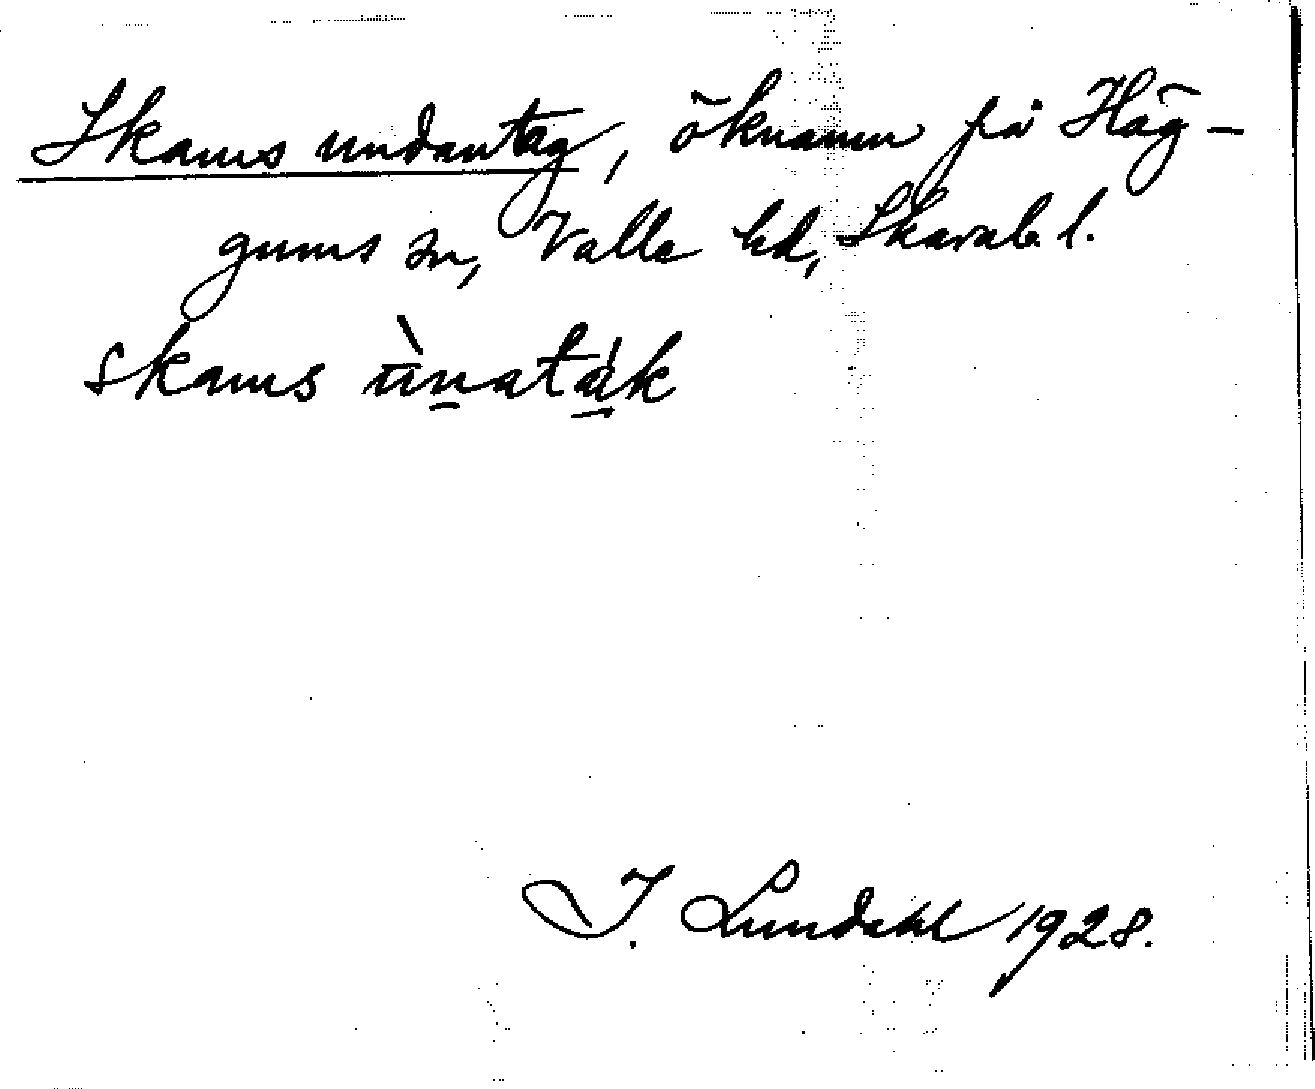 Skams undantag, öknamn på Häg-
gums sn, Valle hd, Skarab. l.
skams ùnaták
I. Lundahl 1928.